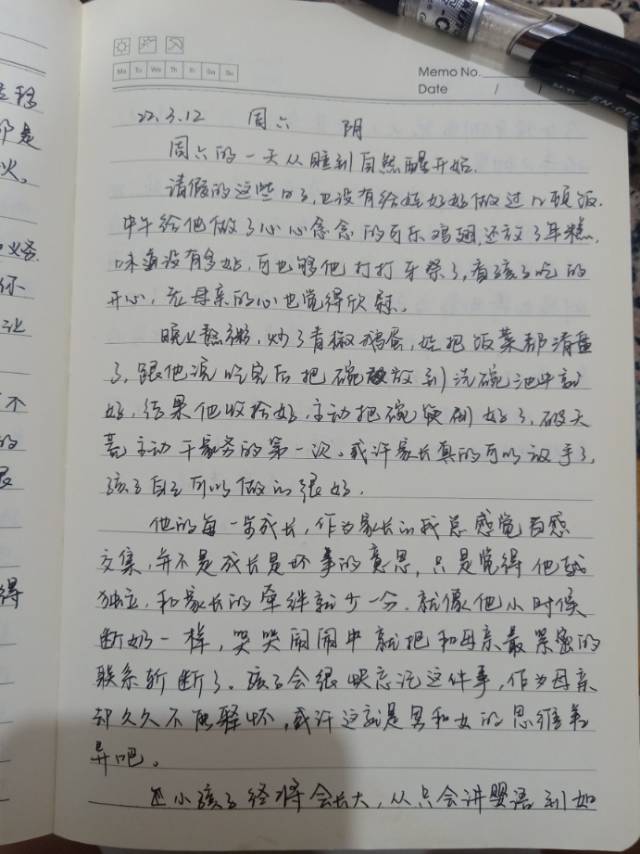 Mo Tu We Th Fr Sa Su
Memo No.
Date / /
22.3.12 周六 阴
周六的一天从睡到自然醒开始.
请假的这些日子,也没有给娃好好做过几顿饭.
中午给他做了心心念念的可乐鸡翅,还放了年糕,
味道没有多好,可也够他打打牙祭了,看孩子吃的
开心,充母亲的心也觉得欣慰。
晚上熬粥,炒了青椒鹅蛋,娃把饭菜都清盘
了,跟他说吃完后把碗放到洗碗池中就
好,结果他收拾好,主动把碗筷刷好了,破天
荒主动干家务的第一次。或许家长真的可以放手了,
孩子自己可以做的很好.
他的每一步成长,作为家长的我总感觉百感
交集,并不是成长是坏事的意思,只是觉得他越
独立,和家长的牵绊就少一分.就像他小时候
断奶一样,哭哭闹闹中就把和母亲最紧密的
联系斩断了。孩子会很快忘记这件事,作为母亲
却久久不能释怀,或许这就是男和女的思维差
异吧。
小孩子终将会长大,从只会讲婴语到如
务
不
的
得